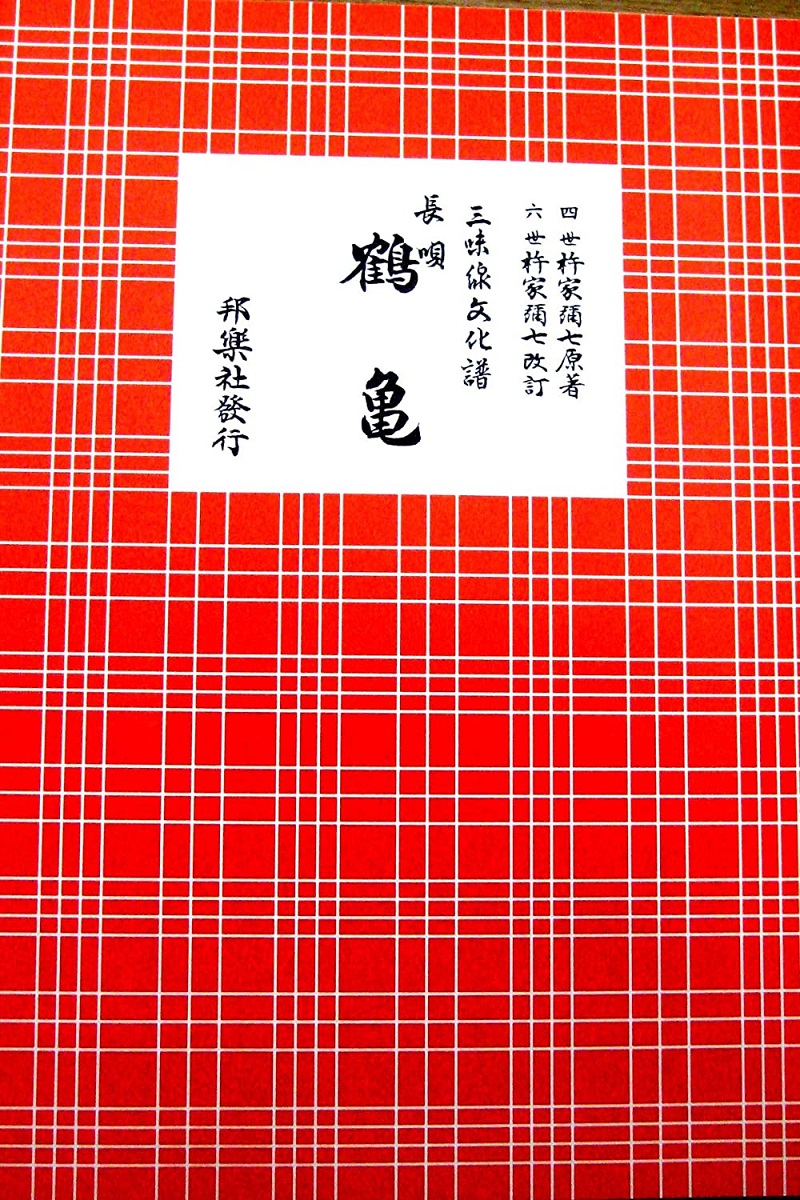 四世杵家彌七原著
六世杵家彌七改訂
三味線文化譜
長唄
鶴亀
邦樂社發行